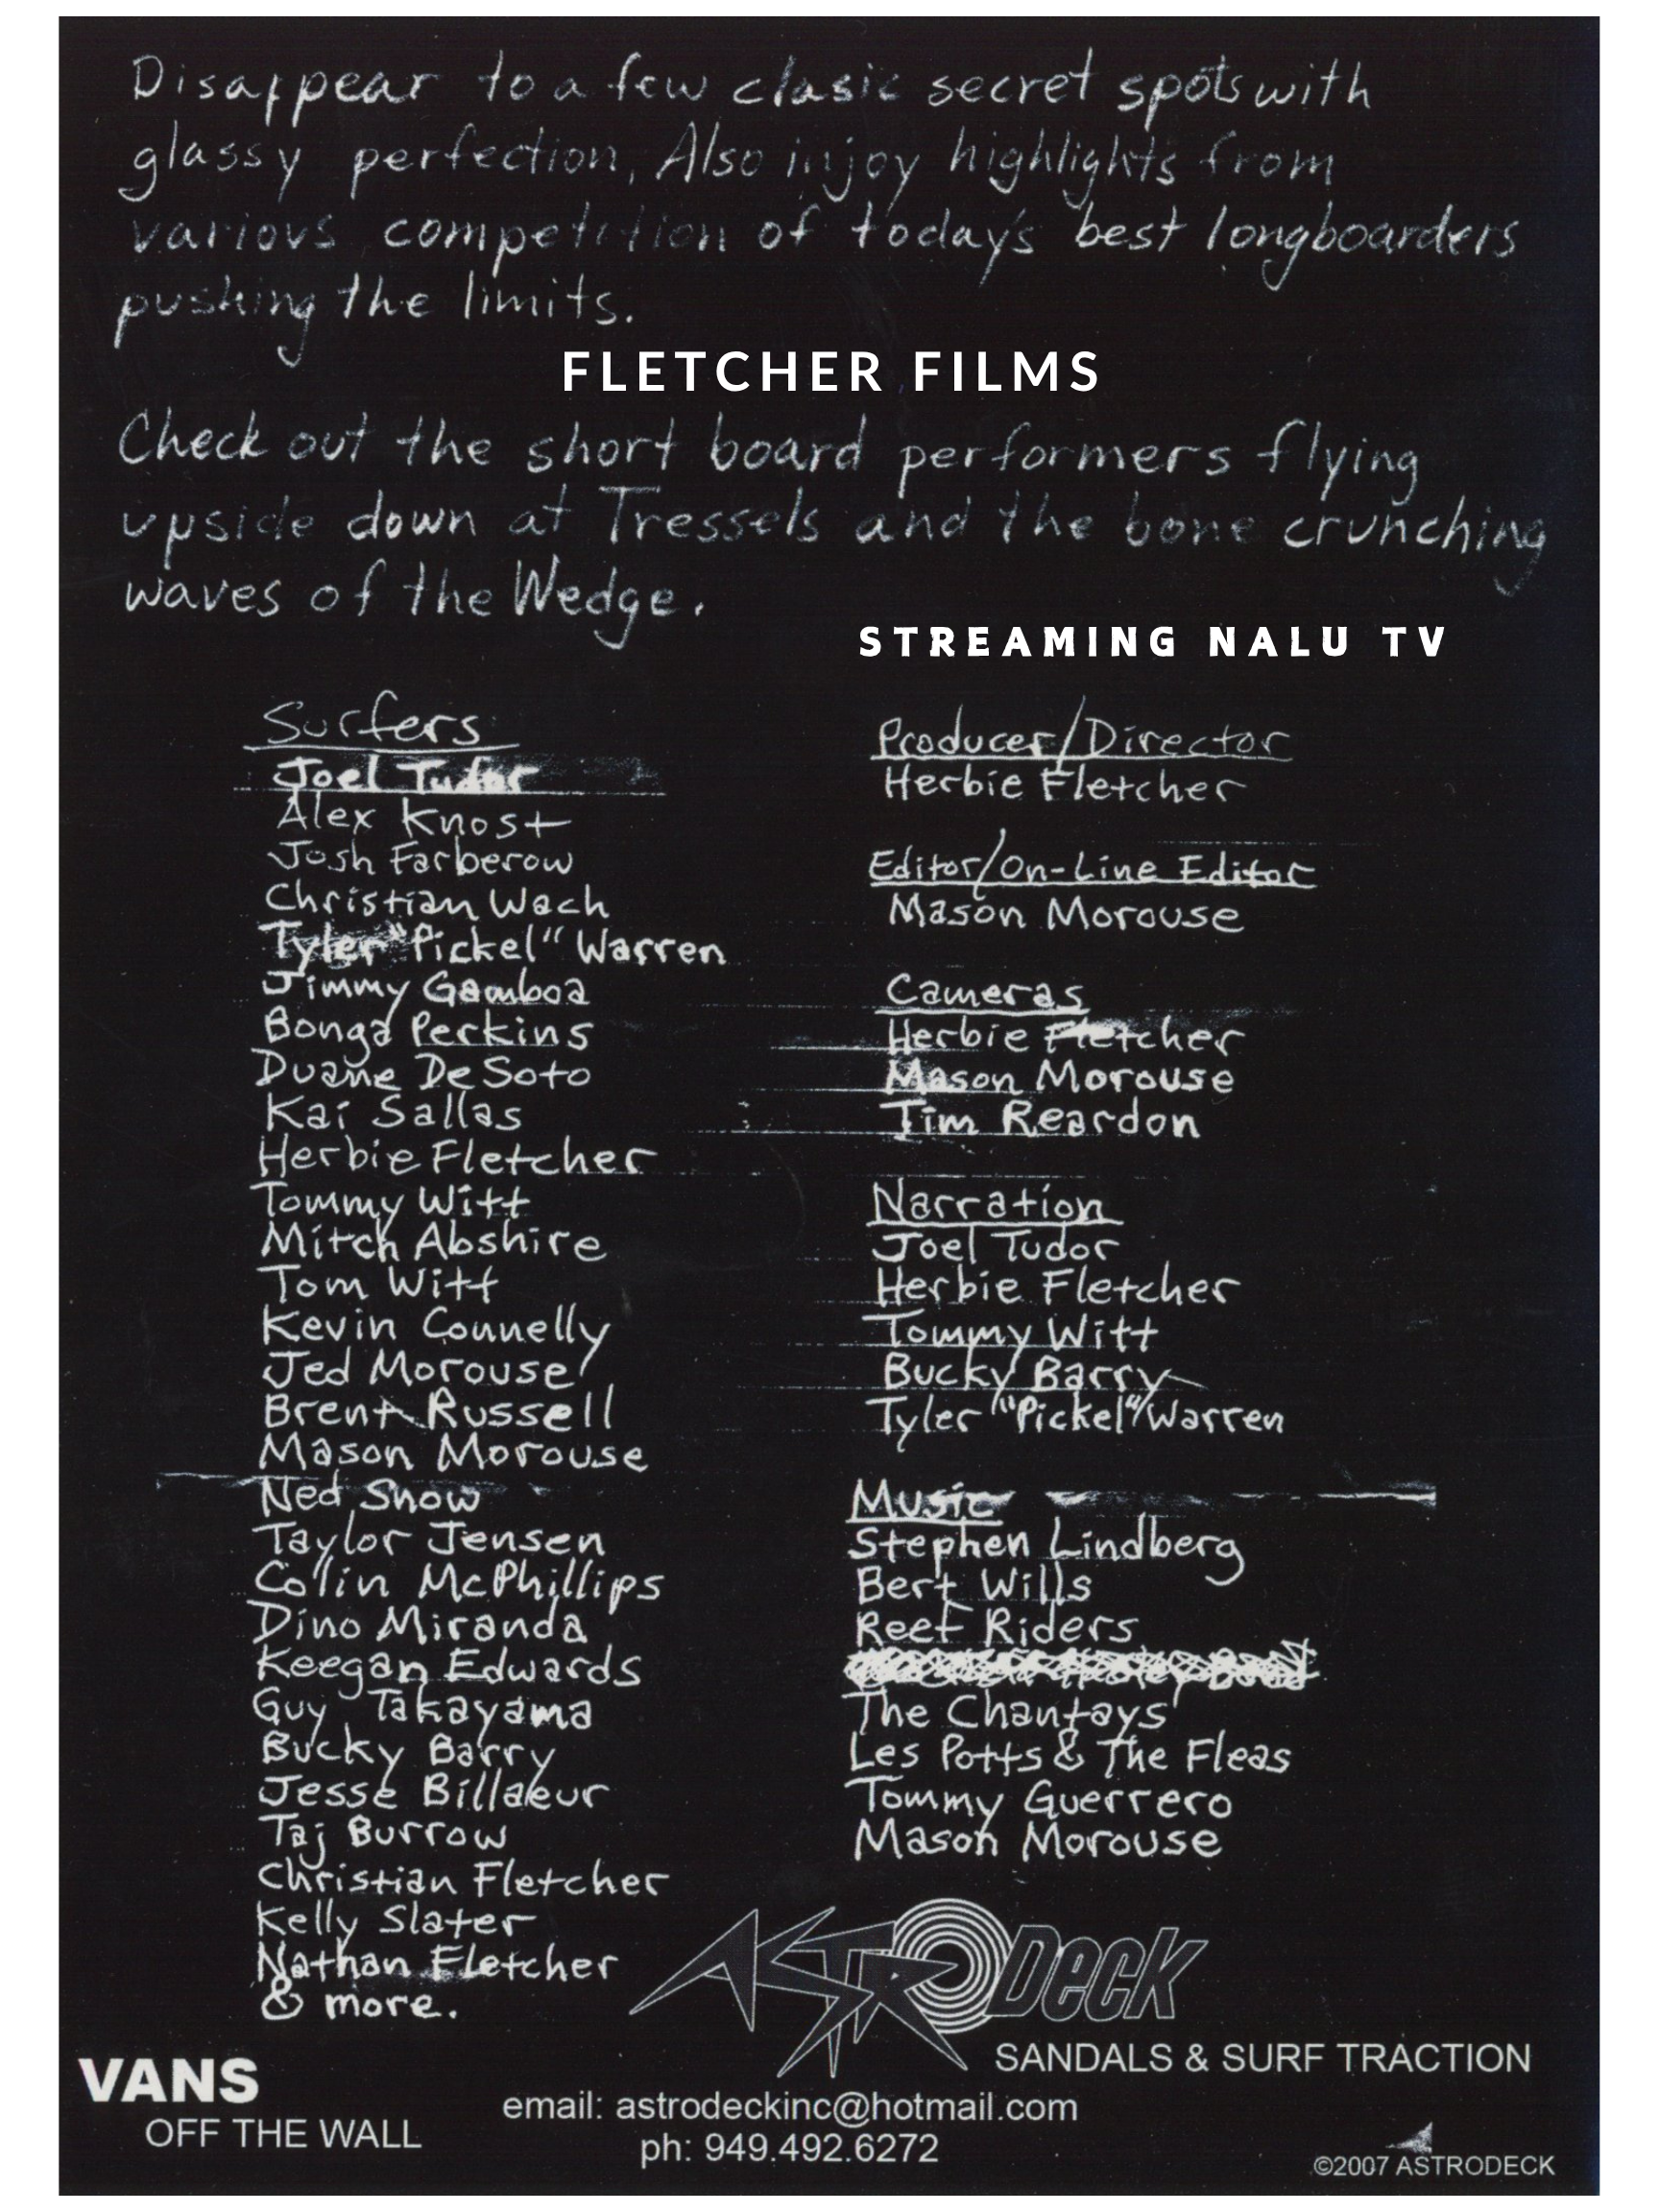 Disappear to a few clasic secret spots with
glassy perfection, Also injoy highlights from
various competition of today's best longboarders
pushing the limits.
FLETCHER FILMS
Check out the short board performers flying
upside down at Tressels and the bone crunching
waves of the Wedge.
STREAMING NALU TV
Surfers
Joel Tudor
Alex Knost
Josh Farberow
Christian Wach
Tyler "Pickel" Warren
Jimmy Gamboa
Bonga Perkins
Duane DeSoto
Kai Sallas
Herbie Fletcher
Tommy Witt
Mitch Abshire
Tom Witt
Kevin Connelly
Jed Morouse
Brent Russell
Mason Morouse
Ned Snow
Taylor Jensen
Colin McPhillips
Dino Miranda
Keegan Edwards
Guy Takayama
Bucky Barry
Jesse Billaeur
Taj Burrow
Christian Fletcher
Kelly Slater
Nathan Fletcher
& more.
Producer/Director
Herbie Fletcher
Editor/On-Line Editor
Mason Morouse
Cameras
Herbie Fletcher
Mason Morouse
Tim Reardon
Narration
Joel Tudor
Herbie Fletcher
Tommy Witt
Bucky Barry
Tyler "Pickel" Warren
Music
Stephen Lindberg
Bert Wills
Reef Riders
The Chantays
Les Potts & The Fleas
Tommy Guerrero
Mason Morouse
ASTRODeck
SANDALS & SURF TRACTION
VANS
OFF THE WALL
email: astrodeckinc@hotmail.com
ph: 949.492.6272
©2007 ASTRODECK